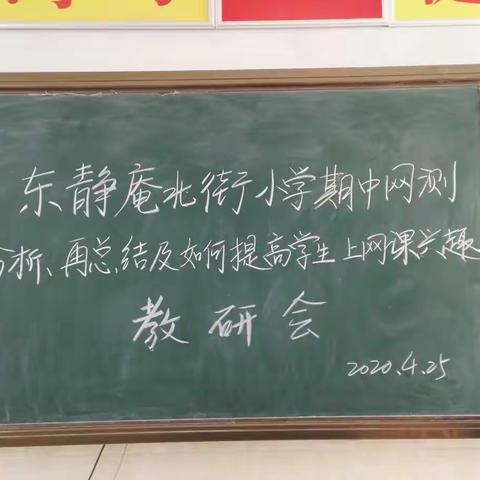 东静庵北街小学期中网测
分析、再总结及如何提高学生上网课兴趣
教研会
2020.4.25